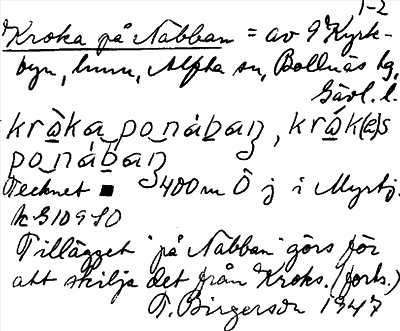 1-2
Kroka på Nabban = av I Kyrk-
byn, hmn, Alfta sn, Bollnäs tg,
Gävl. l.
kròka ponában, krók(a)s
ponában
Tecknet ■ 400 m Ö j i Myrtj.
k G10980
Tillägget "på Nabban" görs för
att skilja det från Kroks. (forts.)
T. Birgersson 1947